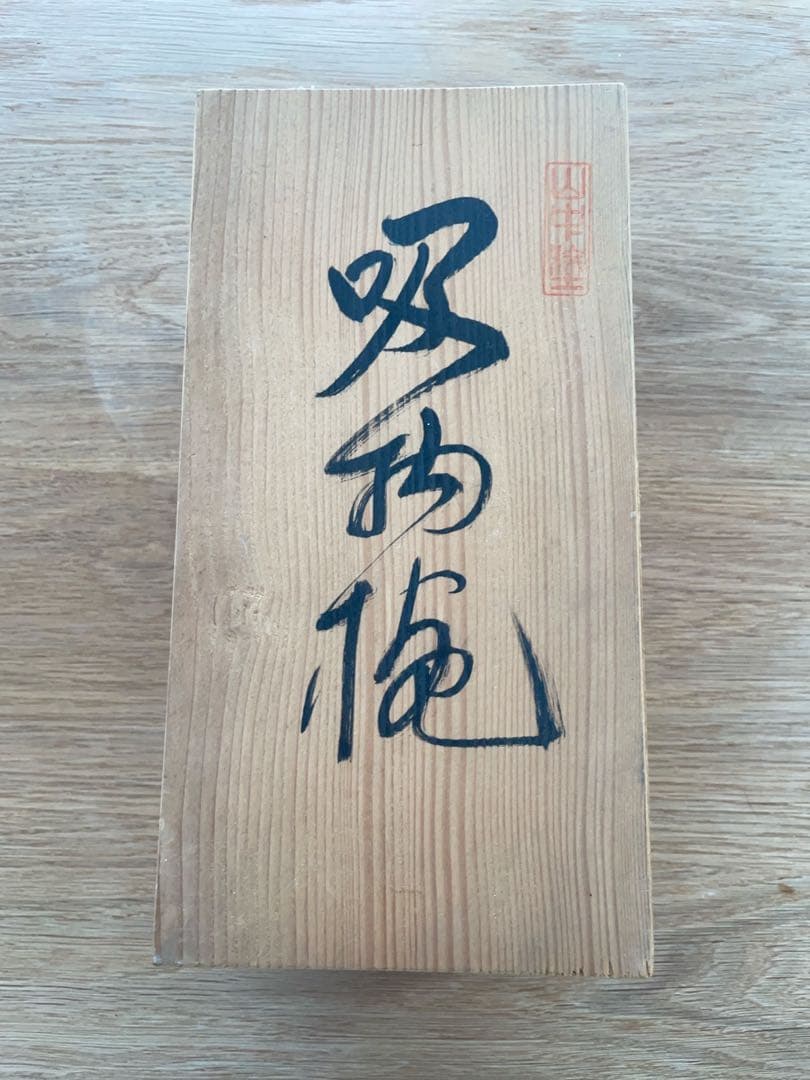 山中塗
吸物椀